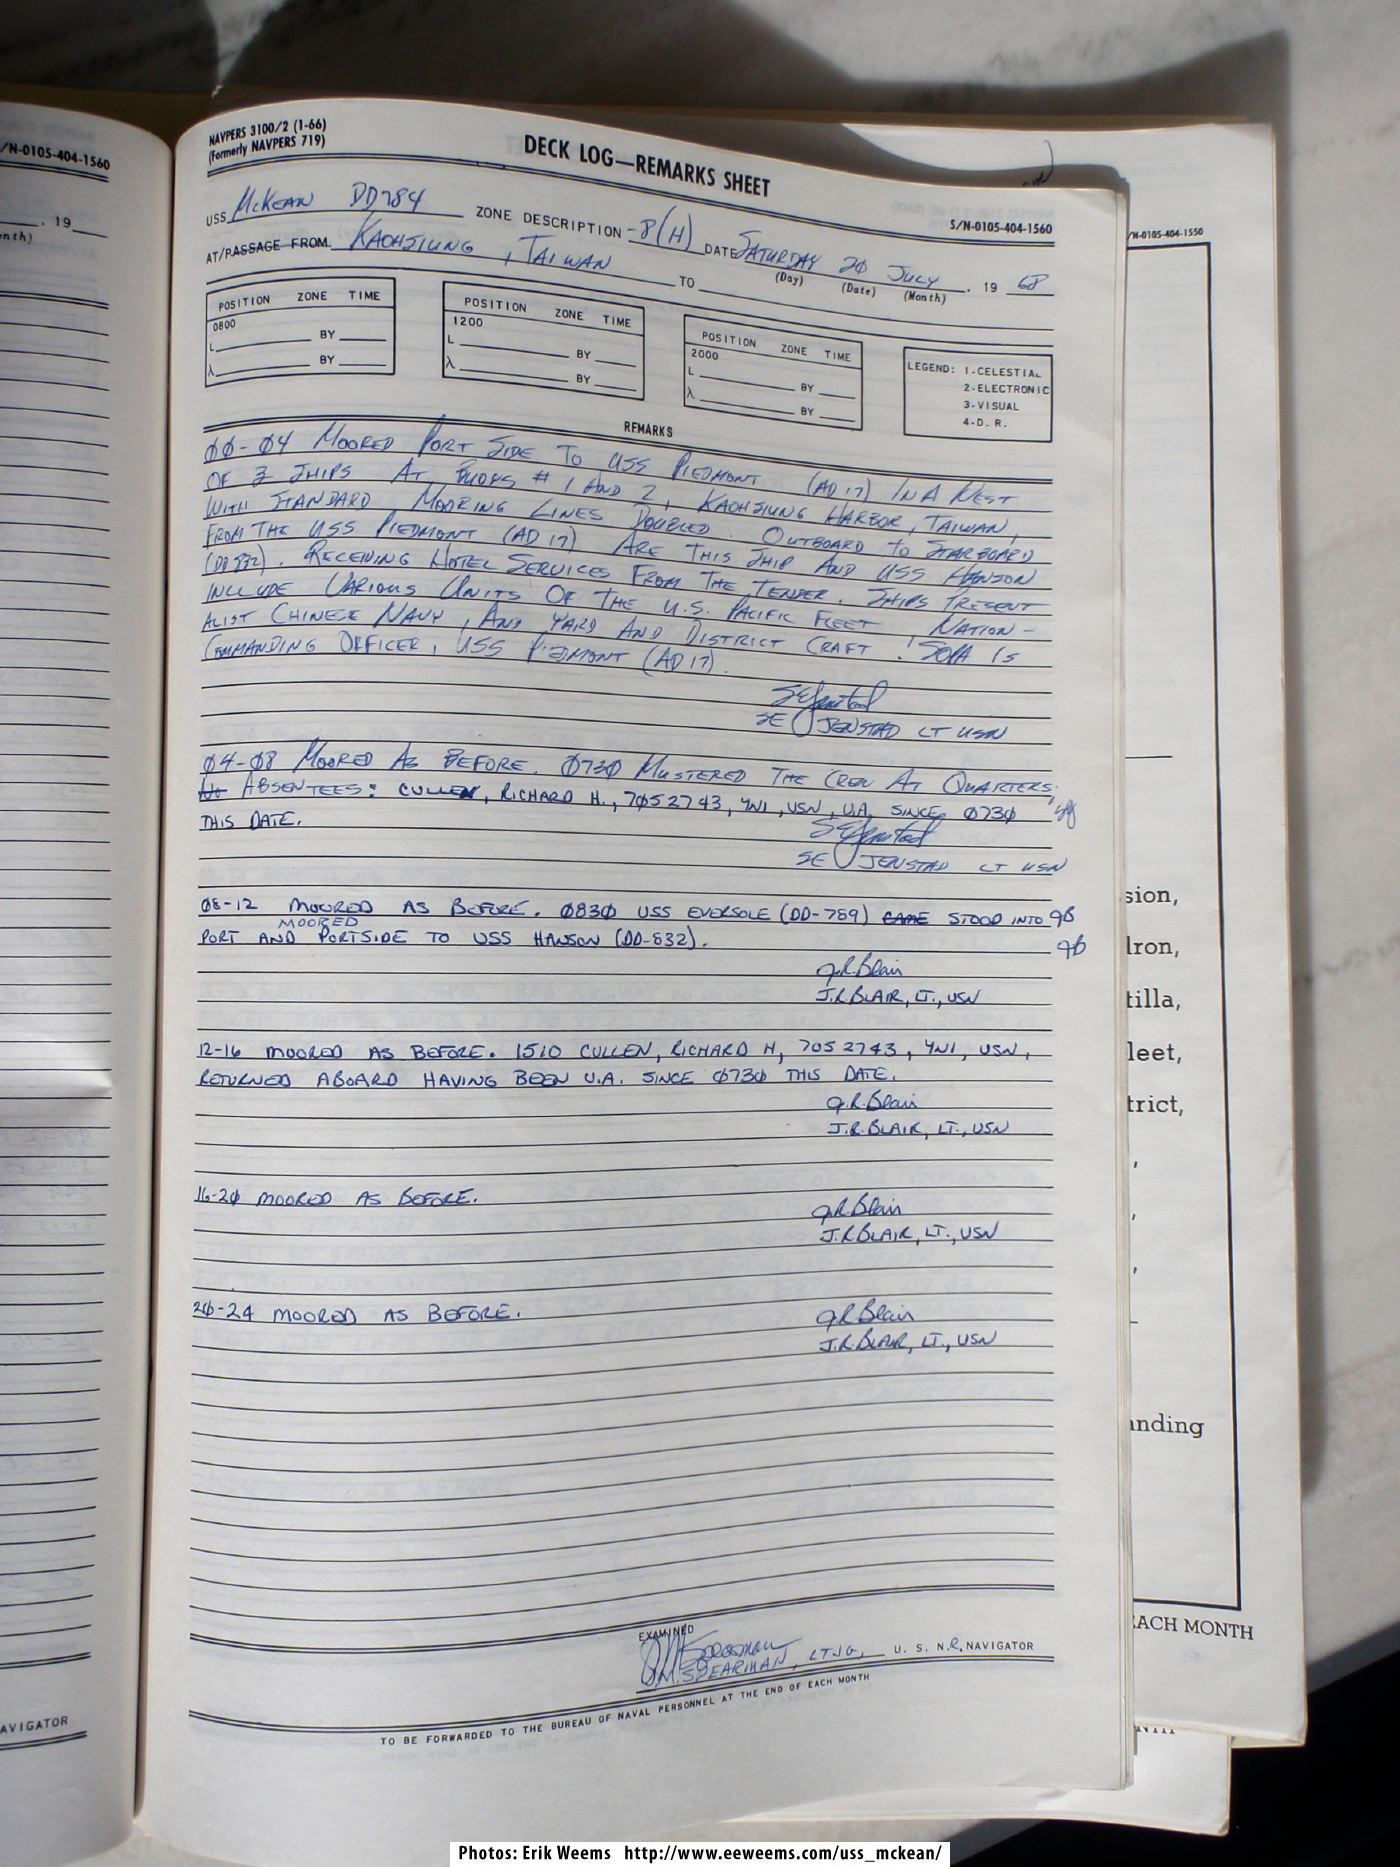 /N-0105-404-1560
. 19
nth)
AVIGATOR
NAVPERS 3100/2 (1-66)
(Formerly NAVPERS 719)
DECK LOG—REMARKS SHEET
S/N-0105-404-1560
USS McKEAN DD784 ZONE DESCRIPTION -8(H) DATE SATURDAY 20 JULY , 19 68
(Day) (Date) (Month)
AT/PASSAGE FROM KAOHSIUNG, TAIWAN TO
POSITION ZONE TIME
0800
L BY
λ BY
POSITION ZONE TIME
1200
L BY
λ BY
POSITION ZONE TIME
2000
L BY
λ BY
LEGEND: 1-CELESTIAL
2-ELECTRONIC
3-VISUAL
4-D. R.
REMARKS
00-04 MOORED PORT SIDE TO USS PIEDMONT (AD 17) IN A NEST
OF 3 SHIPS AT BUOYS # 1 AND 2, KAOHSIUNG HARBOR, TAIWAN,
WITH STANDARD MOORING LINES DOUBLED. OUTBOARD TO STARBOARD
FROM THE USS PIEDMONT (AD 17) ARE THIS SHIP AND USS HANSON
(DD 832). RECEIVING HOTEL SERVICES FROM THE TENDER. SHIPS PRESENT
INCLUDE VARIOUS UNITS OF THE U.S. PACIFIC FLEET NATION-
ALIST CHINESE NAVY, AND YARD AND DISTRICT CRAFT. SOPA IS
COMMANDING OFFICER, USS PIEDMONT (AD 17).
SE Jenstad
SE JENSTAD LT USN
04-08 MOORED AS BEFORE. 0730 MUSTERED THE CREW AT QUARTERS;
No ABSENTEES: CULLEN, RICHARD H., 7052743, YN1, USN, U.A. SINCE 0730
THIS DATE.
SE Jenstad
SE JENSTAD LT USN
08-12 MOORED AS BEFORE. 0830 USS EVERSOLE (DD-789) CAME STOOD INTO JB
MOORED
PORT AND PORTSIDE TO USS HANSON (DD-832). JB
J.R. Blair
J.R. BLAIR, LT., USN
12-16 MOORED AS BEFORE. 1510 CULLEN, RICHARD H, 7052743, YN1, USN,
RETURNED ABOARD HAVING BEEN U.A. SINCE 0730 THIS DATE.
J.R. Blair
J.R. BLAIR, LT., USN
16-20 MOORED AS BEFORE.
J.R. Blair
J.R. BLAIR, LT., USN
20-24 MOORED AS BEFORE.
J.R. Blair
J.R. BLAIR, LT., USN
EXAMINED
SPEARMAN, LTJG, U. S. N.R. NAVIGATOR
TO BE FORWARDED TO THE BUREAU OF NAVAL PERSONNEL AT THE END OF EACH MONTH
/N-0105-404-1550
sion,
dron,
tilla,
leet,
trict,
anding
EACH MONTH
Photos: Erik Weems http://www.eeweems.com/uss_mckean/